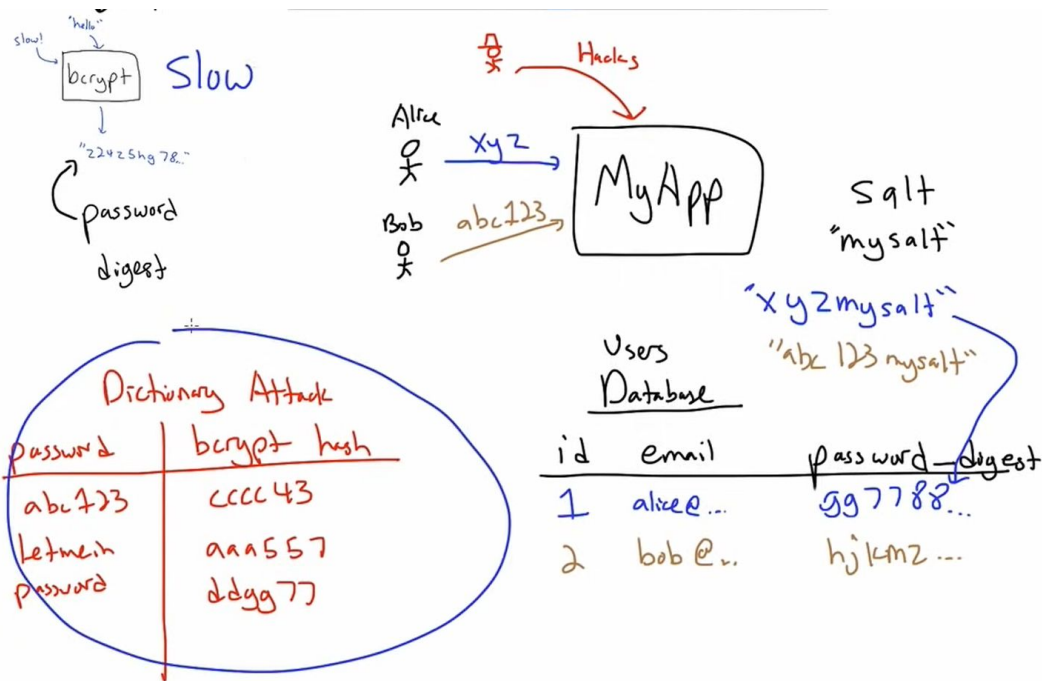 "hello"
slow!
bcrypt
Slow
"22425hg78..."
password
digest
Hacks
Alice
xyz
Bob
abc123
MyApp
salt
"mysalt"
"xyzmysalt"
"abc123mysalt"
Dictionary Attack
password bcrypt hash
abc123 cccc43
letmein aaa557
password ddgg77
Users
Database
id email password_digest
1 alice@... gg7788...
2 bob@... hjkmz...